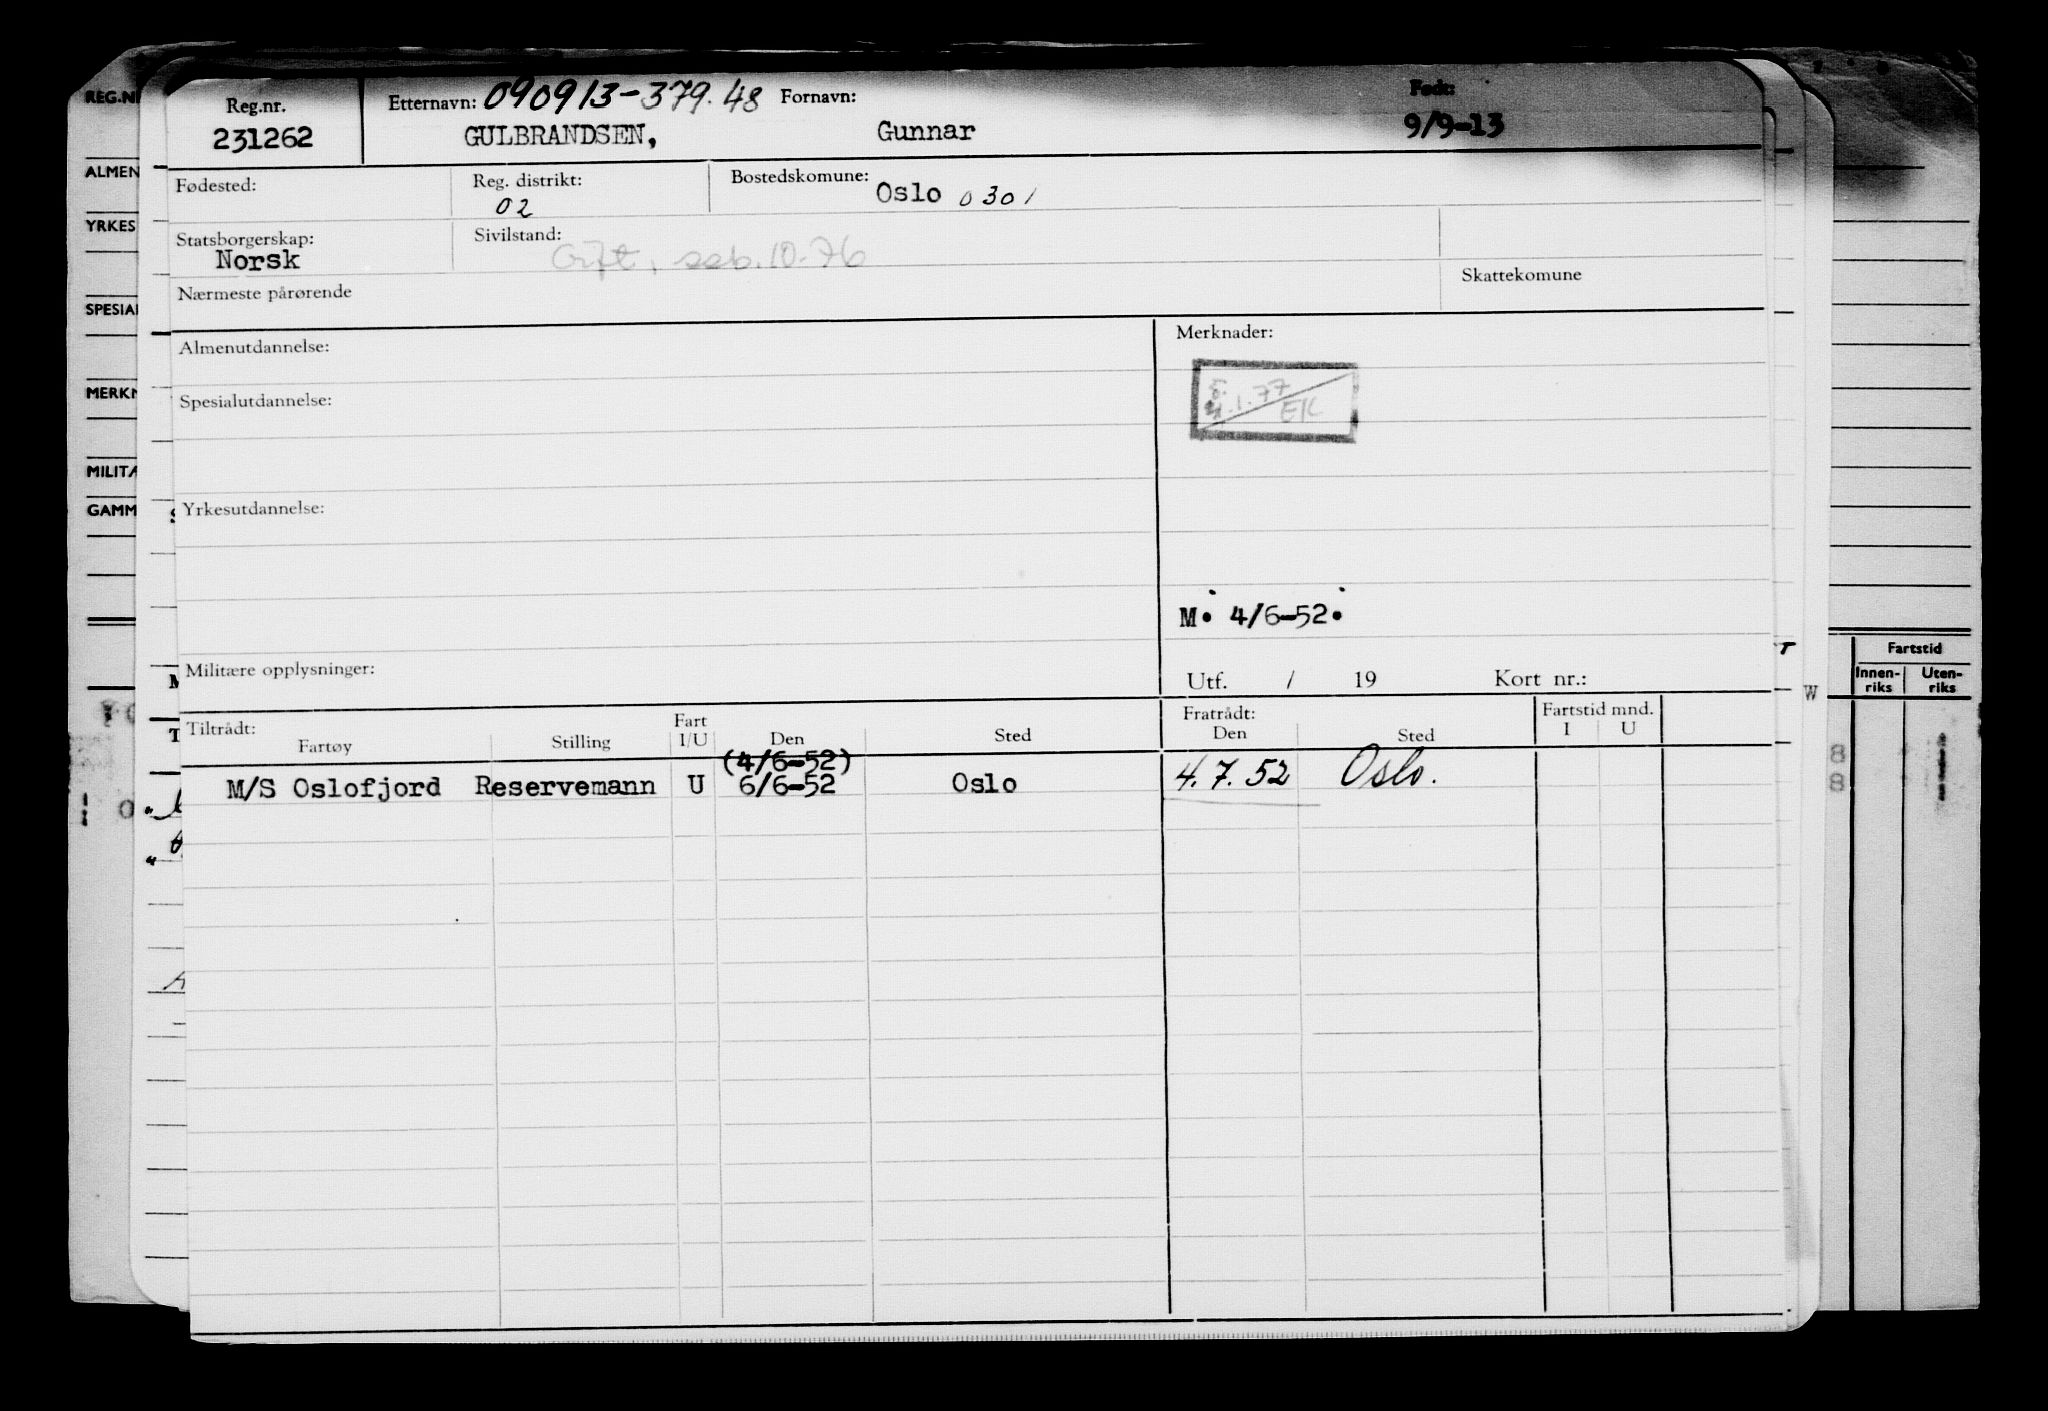 Reg.nr. Etternavn: 090913-379.48 Fornavn: Født:
231262 GULBRANDSEN, Gunnar 9/9-13
Fødested: Reg. distrikt: Bostedskomune:
02 Oslo 0301
Statsborgerskap: Sivilstand:
Norsk Gift, ssb. 10-76
Nærmeste pårørende Skattekomune
Almenutdannelse: Merknader:
4.1.77
EK
Spesialutdannelse:
Yrkesutdannelse:
M. 4/6-52.
Militære opplysninger: Utf. / 19 Kort nr.:
Tiltrådt: Fart Fratrådt: Fartstid mnd.
Fartøy Stilling I/U Den Sted Den Sted I U
(4/6-52)
M/S Oslofjord Reservemann U 6/6-52 Oslo 4.7.52 Oslo.
REG.N
ALMEN
YRKES
SPESIAL
MERKN
MILITÆ
GAMM
Fartstid
Innen-
riks
Uten-
riks
W
8
8